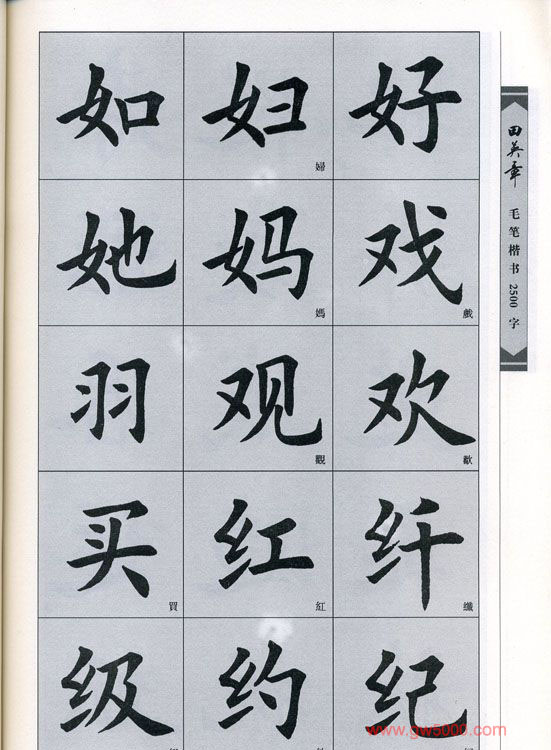 好
妇
婦
如
戏
戲
妈
媽
她
欢
歡
观
觀
羽
纤
纖
红
紅
买
買
纪
约
级
田英章
毛笔楷书2500字
www.gw5000.com